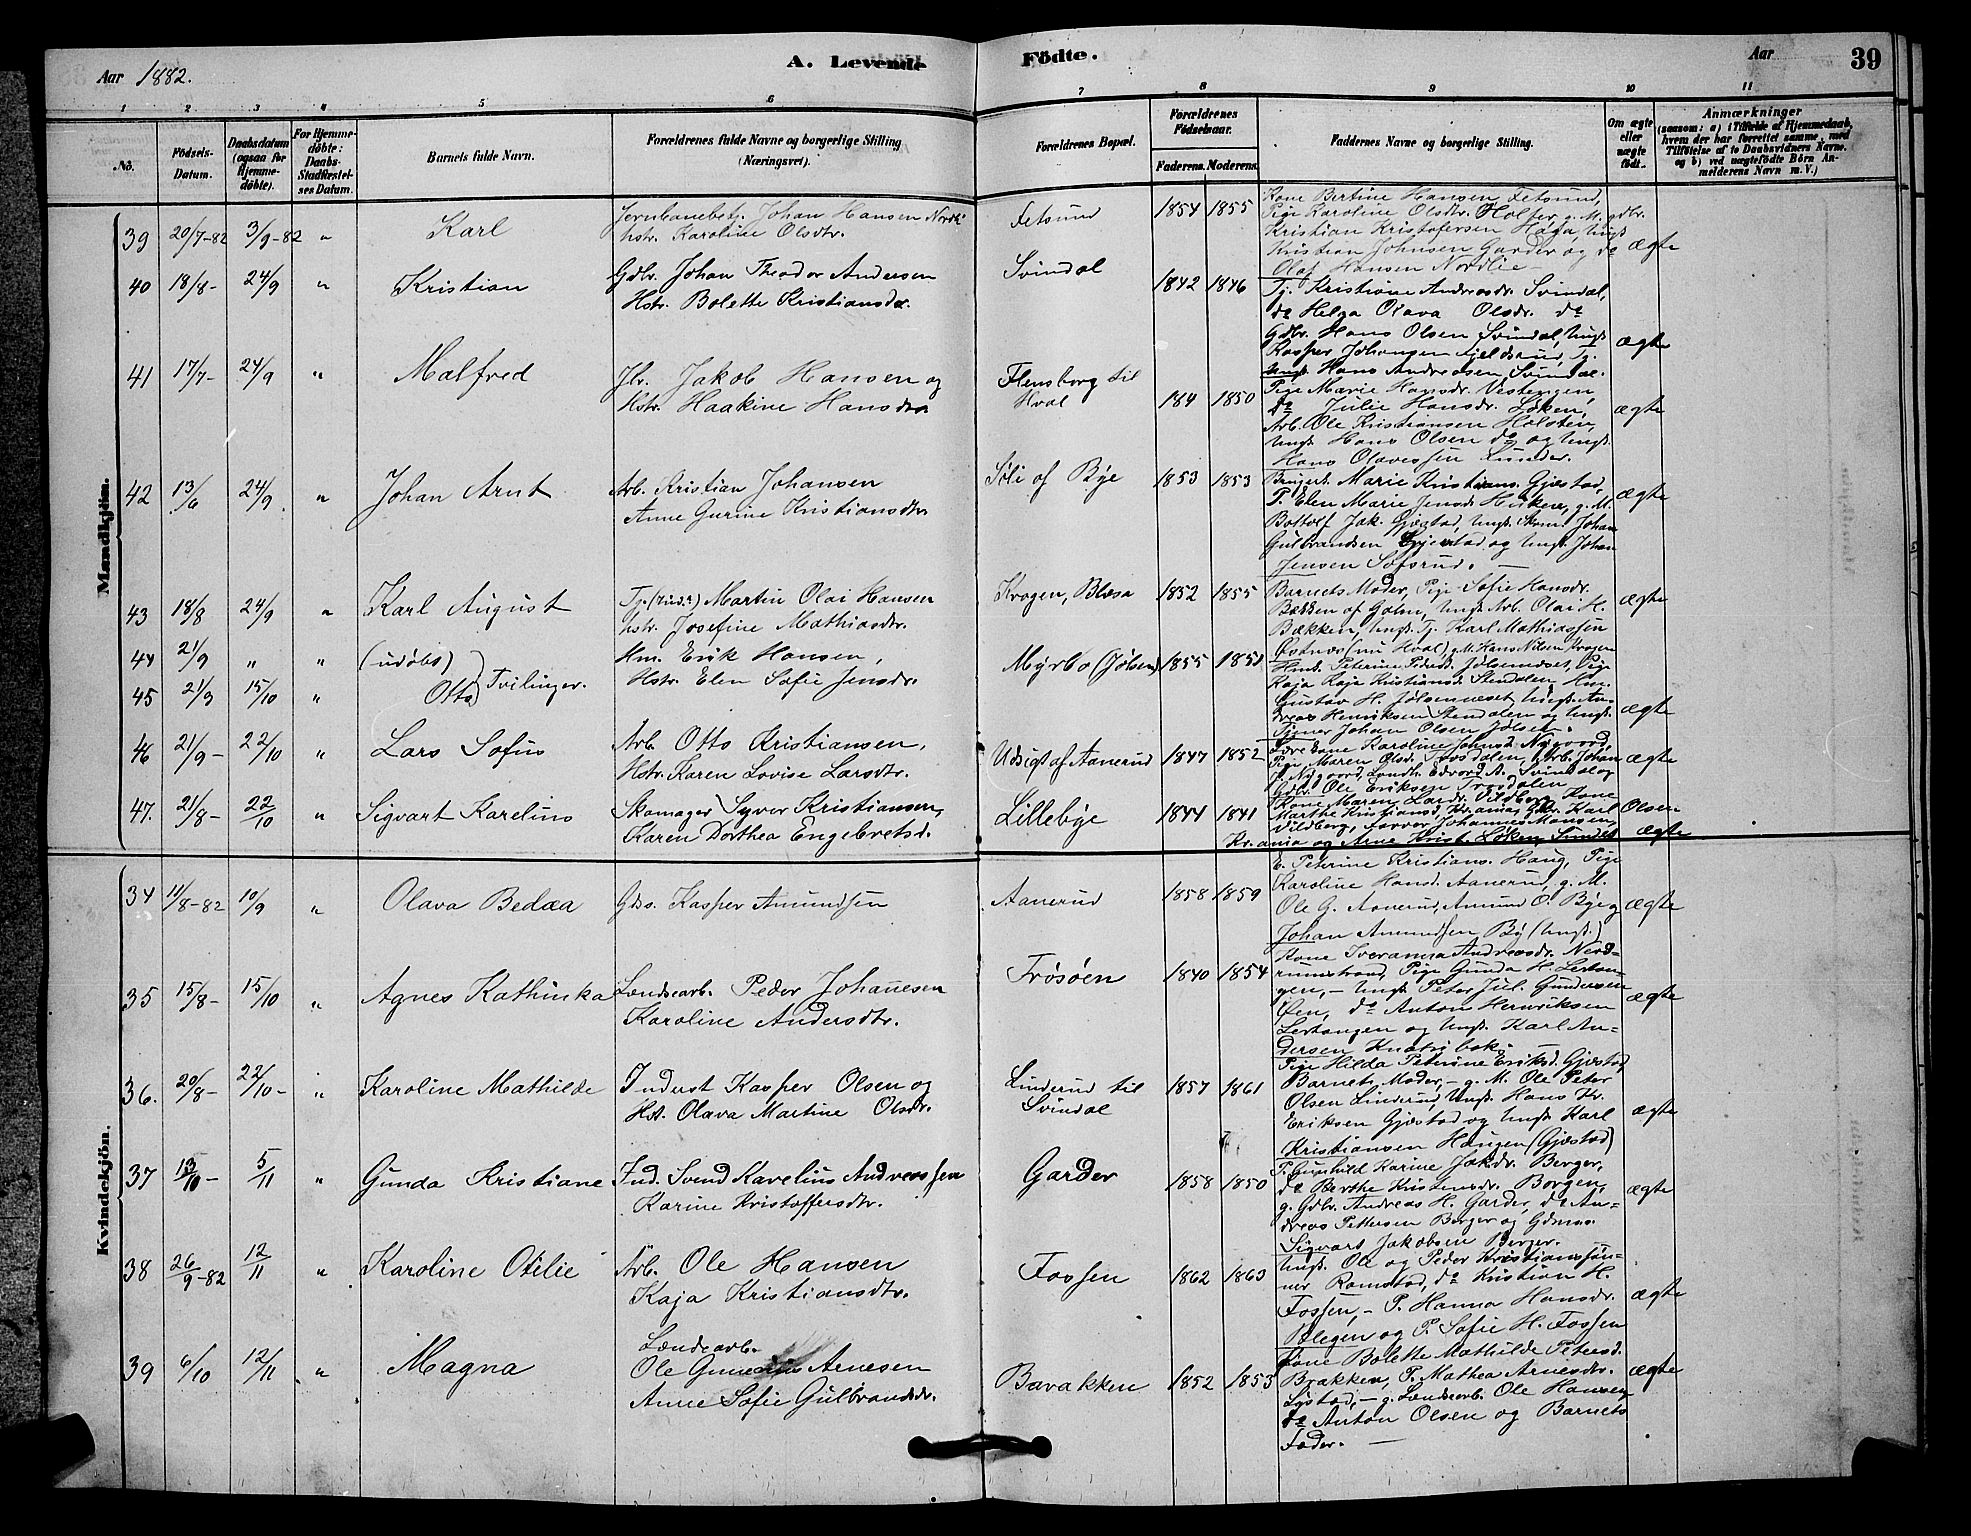 Aar 1882. A. Levende Födte. Aar 39
1 2 3 4 5 6 7 8 9 10 11
No. Födsels-Datum. Daabsdatum (ogsaa for Hjemme-döbte). For Hjemme-döbte: Daabs-Stadfæstel-ses Datum. Barnets fulde Navn. Forældrenes fulde Navne og borgerlige Stilling (Næringsvei). Forældrenes Bopæl. Forældrenes Födselsaar. Faderens. Moderens. Faddernes Navne og borgerlige Stilling. Om ægte eller uægte födt. Anmærkninger (saasom: a) i Tilfælde af Hjemmedaab, hvem der har forrettet samme, med Tilföielse af to Daabsvidners Navne, og b) ved uægtefödte Börn Anmelderens Navn m. V.)
Mandkjön.
39 20/7-82 3/9-82 " Karl Jernbanebetj. Johan Hansen Nordli
hstr. Karoline Olsdtr. Fetsund 1854 1855 Kone Bertine Hansen Fetsund,
Pige Karoline Olsdtr. Holter, g. M. gdbr.
Kristian Kristofersen Haga, Ungk.
Kristian Johnsen Garder og do
Olaf Hansen Nordlie – ægte
40 18/8- 24/9 " Kristian Gdbr. Johan Theodor Andersen
Hstr. Bolette Kristiansdr. Svindal 1842 1846 Tj. Kristiane Andreasdr. Svindal,
do Helga Olava Olsdr. do
Gdbr. Hans Olsen Svindal, Ungk.
Kasper Johansen Fjeldsrud, Tj.
Ungk. Hans Andreasen Svindal. ægte
41 17/7- 24/9 " Malfred Jbr. Jakob Hansen og
Hstr. Haakine Hansdtr. Flensborg til
Hval 184 1850 Pige Marie Hansdr. Vestengen,
do Julie Hansdr. Løken,
Arb. Ole Kristiansen Holsten,
Ungk. Hans Olsen do og Ungk.
Hans Olavessen Lunder. ægte
42 13/6 24/9 " Johan Arnt Arb. Kristian Johansen
Anne Gurine Kristiansdtr. Søli af Bye 1853 1853 Marie Kristians. Gjæstad,
P. Elen Marie Jensd. g. M.
Jak. Gjæstad, Ungk. Johan
Gulbrandsen og Ungk. Johan
Jensen Sofsrud. – ægte
43 18/8 24/9 " Karl August Tj. Martin Olai Hansen
hstr. Josefine Mathiasdtr. Krogen, Blosa 1852 1855 Barnets Moder, Pige Sofie Hansdr.
Bækken af Ungk. Arb. Olai H.
Bækken, Ungk. Tj. Karl Mathiassen
Østnæs (nu Hval), g. M. Hans Nilsen Krogen ægte
44 21/9 " " (udøbt)
45 21/9 15/10 " Otto Tvilinger. Hm. Erik Hansen,
Hstr. Elen Sofie Jensdr. Myrbo (Jølsen) 1855 1851 Petersd. Jølsennæset, Pige
Kaja Kristiansd. Stendalen, Hm.
Gustav H. Jølsennæset, Ungk. An-
dreas Henriksen Stendalen og Ungk.
Tjener Johan Olsen Jølsen. ægte
46 21/9- 22/10 " Lars Sofus Arb. Otto Kristiansen,
Hstr. Karen Lovise Larsdtr. Udsigt af Aanerud 1847 1852 Karoline Johnsd. Nygaard,
Pige Maren Olsd. Arb. Johan
J. Nygaard, Landh. Edvard A. Svindal og
Gdbr. Ole Eriksen ægte
47. 21/8- 22/10 " Sigvart Karelius Skomager Syver Kristiansen,
Karen Dorthea Engebretsd. Lillebye 1844 1841 Kone Maren Larsdr. Vildberg, Kone
Marthe Kristiansd. Kr.ania, Gdbr. Karl Olsen
Vildberg, Johannes Hansen,
Kr.ania og Arne Krist. Løken, Sundet ægte
Kvindekjön.
34 11/8-82 10/9 " Olava Bedæa Gds. Kasper Amundsen Aanerud 1858 1859 E. Peterine Kristians. Haug, Pige
Karoline Hansd. Aanerud, g. M.
Ole G. Aanerud, Amund O. Bye og
Johan Amundsen By (Ungk.) ægte
35 15/8- 15/10 " Agnes Kathinka Landearb. Peder Johanesen
Karoline Andersdtr. Trøsøen 1840 1854 Kone Iveranna Andreasdr. Nerd-
rumstrand, Pige Gunda H. Lertan-
gen, – Ungk. Peter Jul. Gundersen
Øen, do Anton Henriksen
Lertangen og Ungk. Karl An-
dersen ægte
36. 20/8- 22/10- " Karoline Mathilde Indust Kasper Olsen og
Hst. Olava Martine Olsdr. Linderud til
Svindal 1857 1861 Pige Hilda Peterine Eriksd. Gjæstad,
Barnets Moder, – g. M. Ole Peter
Olsen Linderud, Ungk. Hans Kr.
Eriksen Gjæstad og Ungk. Karl
Kristiansen Haugen (Gjæstad) ægte
37 13/10- 5/11 " Gunda Kristiane Ind. Svend Karelius Andreassen
Karine Kristoffersdtr. Garder 1858 1850 P. Gunhild Karine Jakdr. Berger,
do Berthe Kristensdr. Borgen,
g. Gdbr. Andreas H. Garder, do An-
dreas Pettersen Berger og Gdmns.
Sigvart Jakobsen Berger. ægte
38 26/9-82 12/11 " Karoline Otilie Arb. Ole Hansen
Kaja Kristiansdtr. Fossen 1862 1863 Ungk. Ole og Peder Kristianssøn-
ner Ramstad, do Kristian H.
Fossen, – P. Hanna Hansdr.
Hegen og P. Sofie H. Fossen ægte
39 6/10 12/11 " Magna Landearb.
Ole Arnesen
Anne Sofie Gulbrandsdr. Bavakken 1852 1853 Kone Bolette Mathilde Petersd.
Brakken, P. Mathea Arnesdtr.
– g. Landearb. Ole Hansen
do Anton Olsen og Barnets
Fader. – ægte